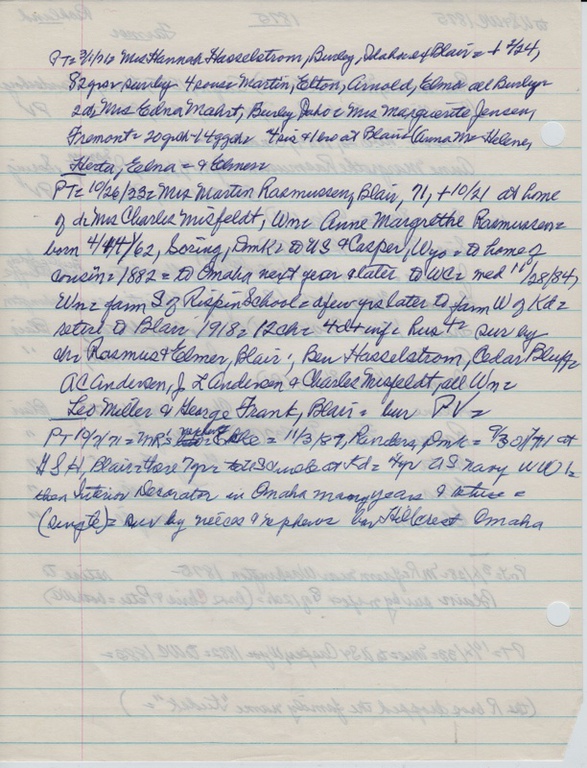 PT= 3/1/76 Mrs Hannah Hasselstrom, Burley, Idaho, ex Blair = + 2/24,
82 grsv surv by 4 sons: Martin, Elton, Arnold, Elmo all Burley
2 d, Mrs Edna Mahrt, Burley, Idaho & Mrs Marguerite Jensen,
Fremont = 20 gch - 14 ggch 4 sis & 1 bro at Blair (Anna Me- Helene,
Herta, Edna = & Elmer
PT= 10/26/33 = Mrs Martin Rasmussen, Blair, 71, + 10/21 at home
of dr Mrs Charles Misfeldt, Wn = Anne Margrethe Rasmussen =
born 4/14/62, Soring, Dmk = to US & Casper, Wyo = to home of
cousin = 1882 = to Omaha next year & later to WC = med 11/28/84,
Wn = farm S of Rispin School = a few yrs later to farm W of Kd =
retire to Blair 1918 = 12 ch = 4 d + inf = hus + sur by
ch Rasmus & Elmer, Blair; Ben Hasselstrom, Cedar Bluff =
A C Andersen, J L Andersen & Charles Misfeldt, all Wn =
Leo Miller & George Frank, Blair = bur PV =
PT 10/7/71 = MR's = 11/3/87, Randers, Dmk = 9/30/71 at
G S H, Blair = there 7 yr = to US at Kd = 4 yr US navy WW I =
then Interior Decorator in Omaha many years & retire =
(single) = sur by neices & nephews bur Hillcrest Omaha